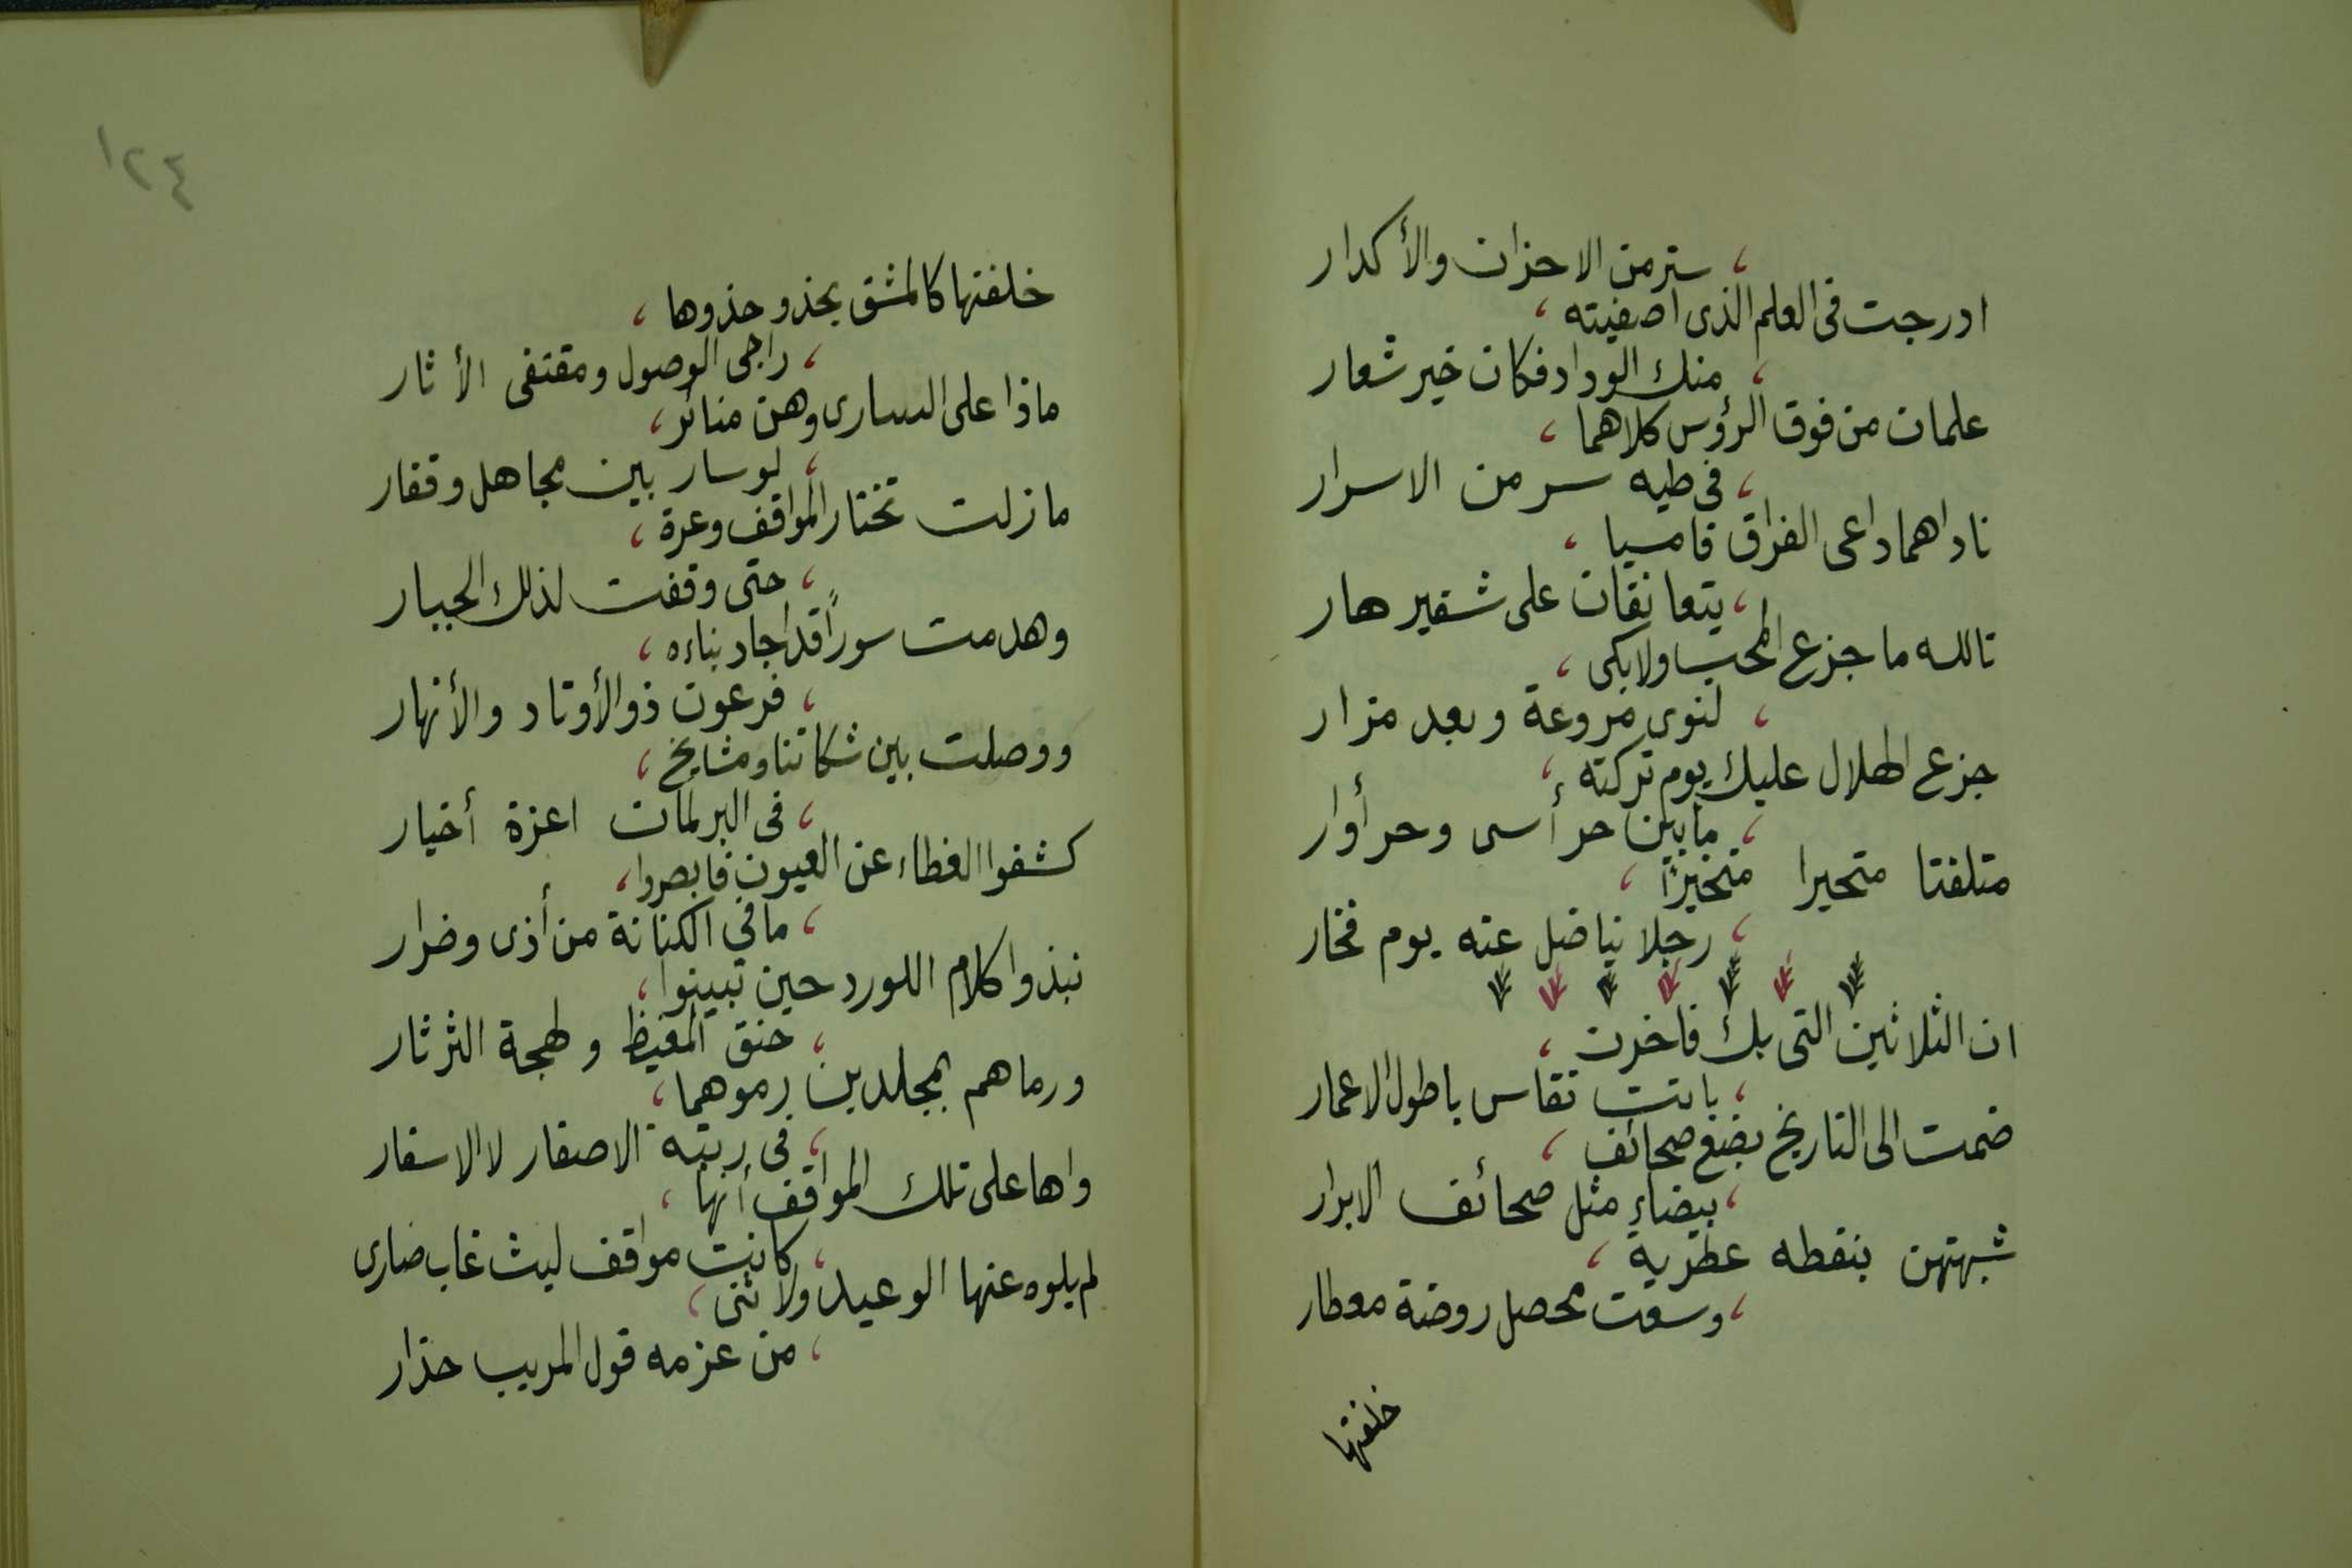 ، ستر من الاحزان والأكدار
ادرجت فى العلم الذى اصفيته ،
، منك الوداد فكان خير شعار
علمان من فوق الرؤس كلاهما ،
، فى طيه سر من الاسرار
ناداهما داعى الفراق فامسيا ،
، يتعانقان على شفير هار
تالله ما جزع المحب ولا بكى ،
، لنوى مروعة وبعد مزار
جزع الهلال عليك يوم تركته ،
، ما بين حر أسى وحر أوار
متلفتا متحيرا متخيرًا ،
، رجلا يناضل عنه يوم فخار
ان الثلاثين التى بك فاخرت ،
، باتت تقاس باطول الاعمار
ضمت الى التاريخ بضع صحائف ،
، بيضاء مثل صحائف الابرار
شبهتهن بنقطه عطرية ،
، وسعت محصل روضة معطار
خلفتها
١٢٤
خلفتها كالمشق يحذو حذوها ،
، راجى الوصول ومقتفى الأثار
ماذا على السارى وهن منائر ،
، لو سار بين مجاهل وقفار
مازلت تختار المواقف وعرة ،
، حتى وقفت لذلك الجبار
وهدمت سورًا قد اجاد بناءه ،
، فرعون ذو الأوتاد والأنهار
ووصلت بين شكاتنا ومشايخ ،
، فى البرلمان اعزة أخيار
كشفوا الغطاء عن العيون فابصروا ،
، ما في الكنانة من أذى وضرار
نبذوا كلام اللورد حين تبينوا ،
، حنق المغيظ ولهجة الثرثار
ورماهم بمجلدين رموهما ،
، فى رتبة الاصفار لا الاسفار
واها على تلك المواقف أنها ،
، كانت مواقف ليث غاب ضارى
لم يلوه عنها الوعيد ولا ثنى ،
، من عزمه قول المريب حذار